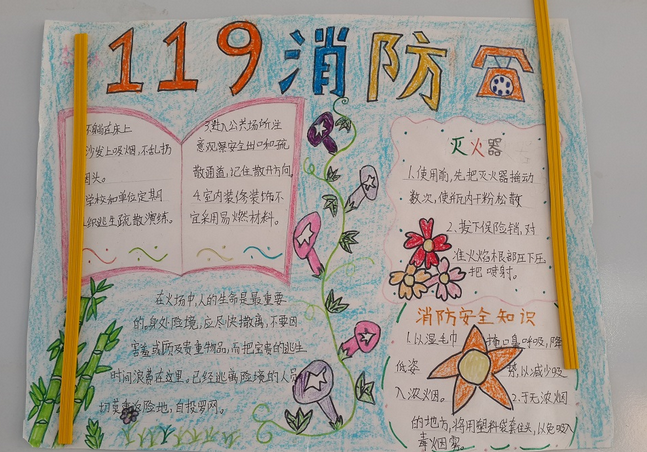 119消防
不躺在床上
沙发上吸烟,不乱扔
烟头。
学校和单位定期
组织逃生疏散演练。
3.进入公共场所注
意观察安全出口和疏
散通道,记住散开方向
4.室内装修装饰不
宜采用易燃材料。
灭火器
1.使用前,先把灭火器摇动
数次,使瓶内干粉松散
2.拔下保险销,对
准火焰根部压下压
把喷射。
在火场中,人的生命是最重要
的,身处险境,应尽快撤离,不要因
害羞或顾及贵重物品,而把宝贵的逃生
时间浪费在这里。已经逃离险境的人员
切莫重返险地,自投罗网。
消防安全知识
1.以湿毛巾 掩口鼻呼吸,降
低姿 势,以减少吸
入浓烟。 2.于无浓烟
的地方,将用塑料袋套住头,以免吸入
毒烟雾。